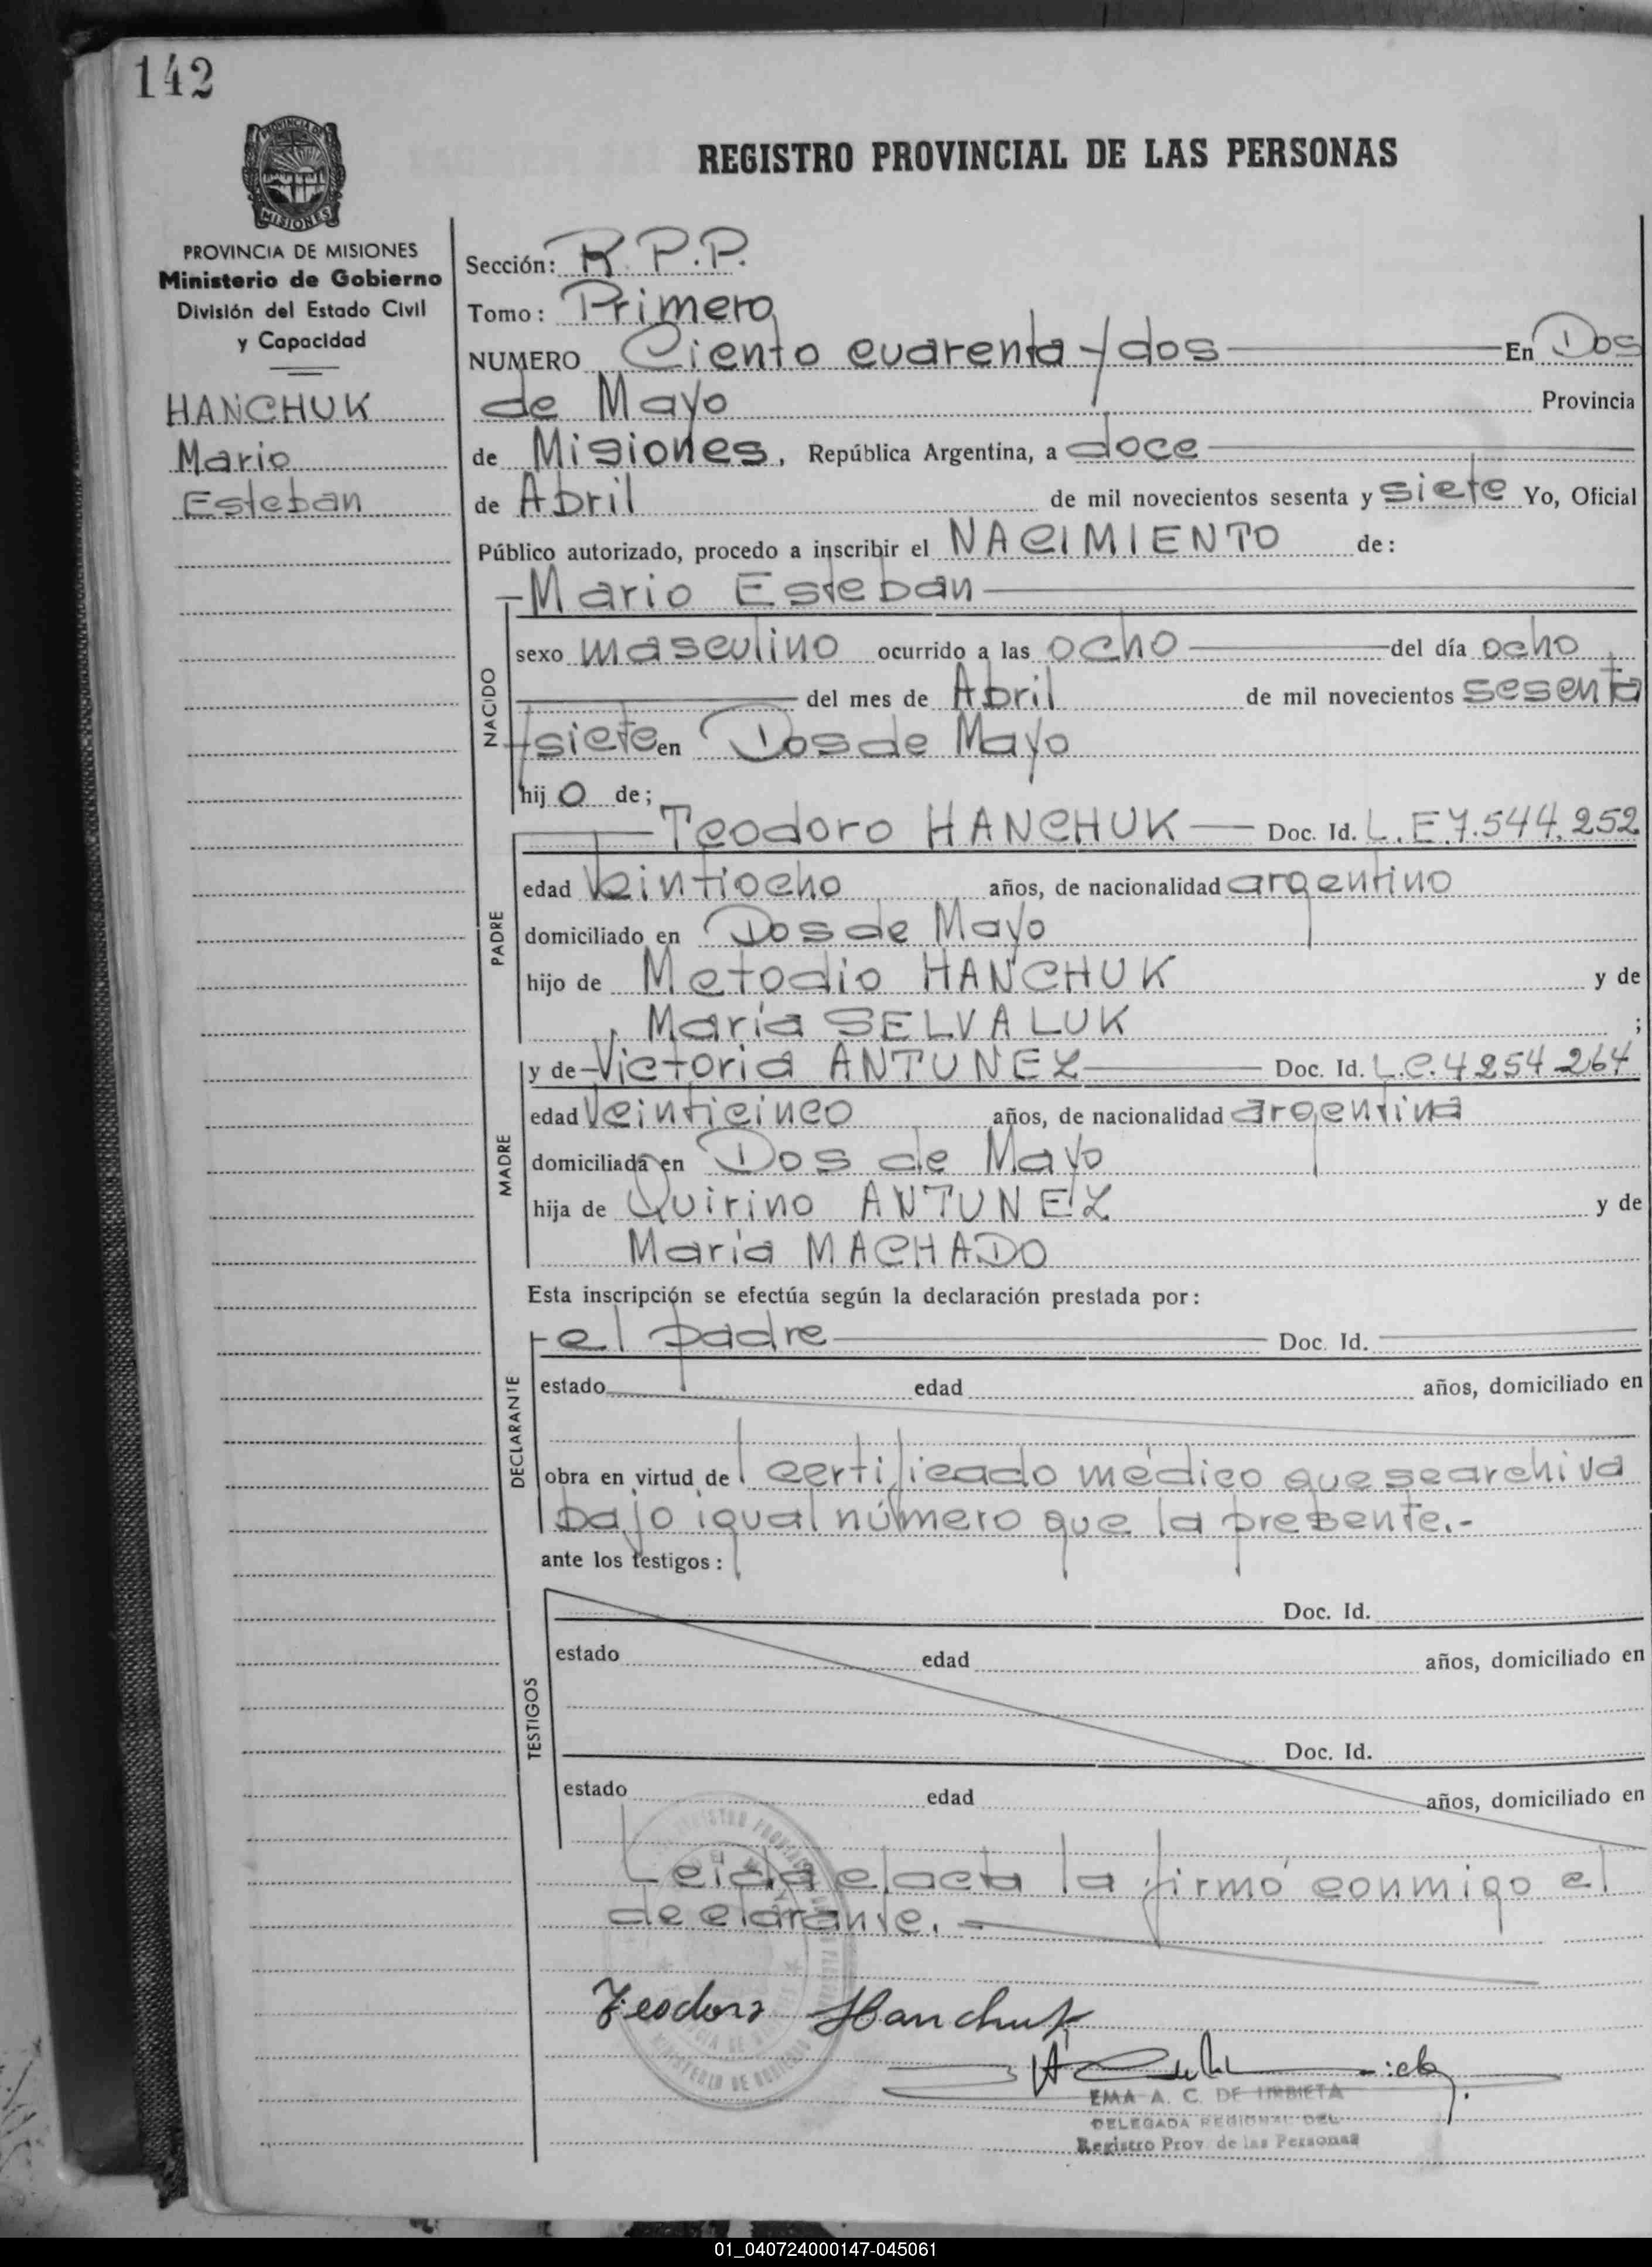 142
REGISTRO PROVINCIAL DE LAS PERSONAS
PROVINCIA DE MISIONES
MISIONES
PROVINCIA DE MISIONES
Ministerio de Gobierno
División del Estado Civil
y Capacidad
HANCHUK
Mario
Esteban
Sección: R.P.P.
Tomo: Primero
NUMERO Ciento cuarenta y dos En Dos
de Mayo Provincia
de Misiones, República Argentina, a doce
de Abril de mil novecientos sesenta y siete Yo, Oficial
Público autorizado, procedo a inscribir el NACIMIENTO de:
Mario Esteban
NACIDO
sexo masculino ocurrido a las ocho del día ocho
del mes de Abril de mil novecientos sesenta
y siete en Dos de Mayo
hijo de;
PADRE
Teodoro HANCHUK Doc. Id. L.E 7.544.252
edad Veintiocho años, de nacionalidad argentino
domiciliado en Dos de Mayo
hijo de Metodio HANCHUK y de
María SELVALUK ;
MADRE
y de Victoria ANTUNEZ Doc. Id. L.C. 4254264
edad Veinticinco años, de nacionalidad argentina
domiciliada en Dos de Mayo
hija de Quirino ANTUNEZ y de
María MACHADO
Esta inscripción se efectúa según la declaración prestada por:
DECLARANTE
el padre Doc. Id.
estado edad años, domiciliado en
obra en virtud del certificado médico que se archiva
bajo igual número que la presente.-
ante los testigos:
TESTIGOS
Doc. Id.
estado edad años, domiciliado en
Doc. Id.
estado edad años, domiciliado en
Leida el acta la firmó conmigo el
declarante.-
Teodoro Hanchuk
EMA A. C. DE URBIETA
DELEGADA REGIONAL DEL
Registro Prov. de las Personas
01_040724000147-045061